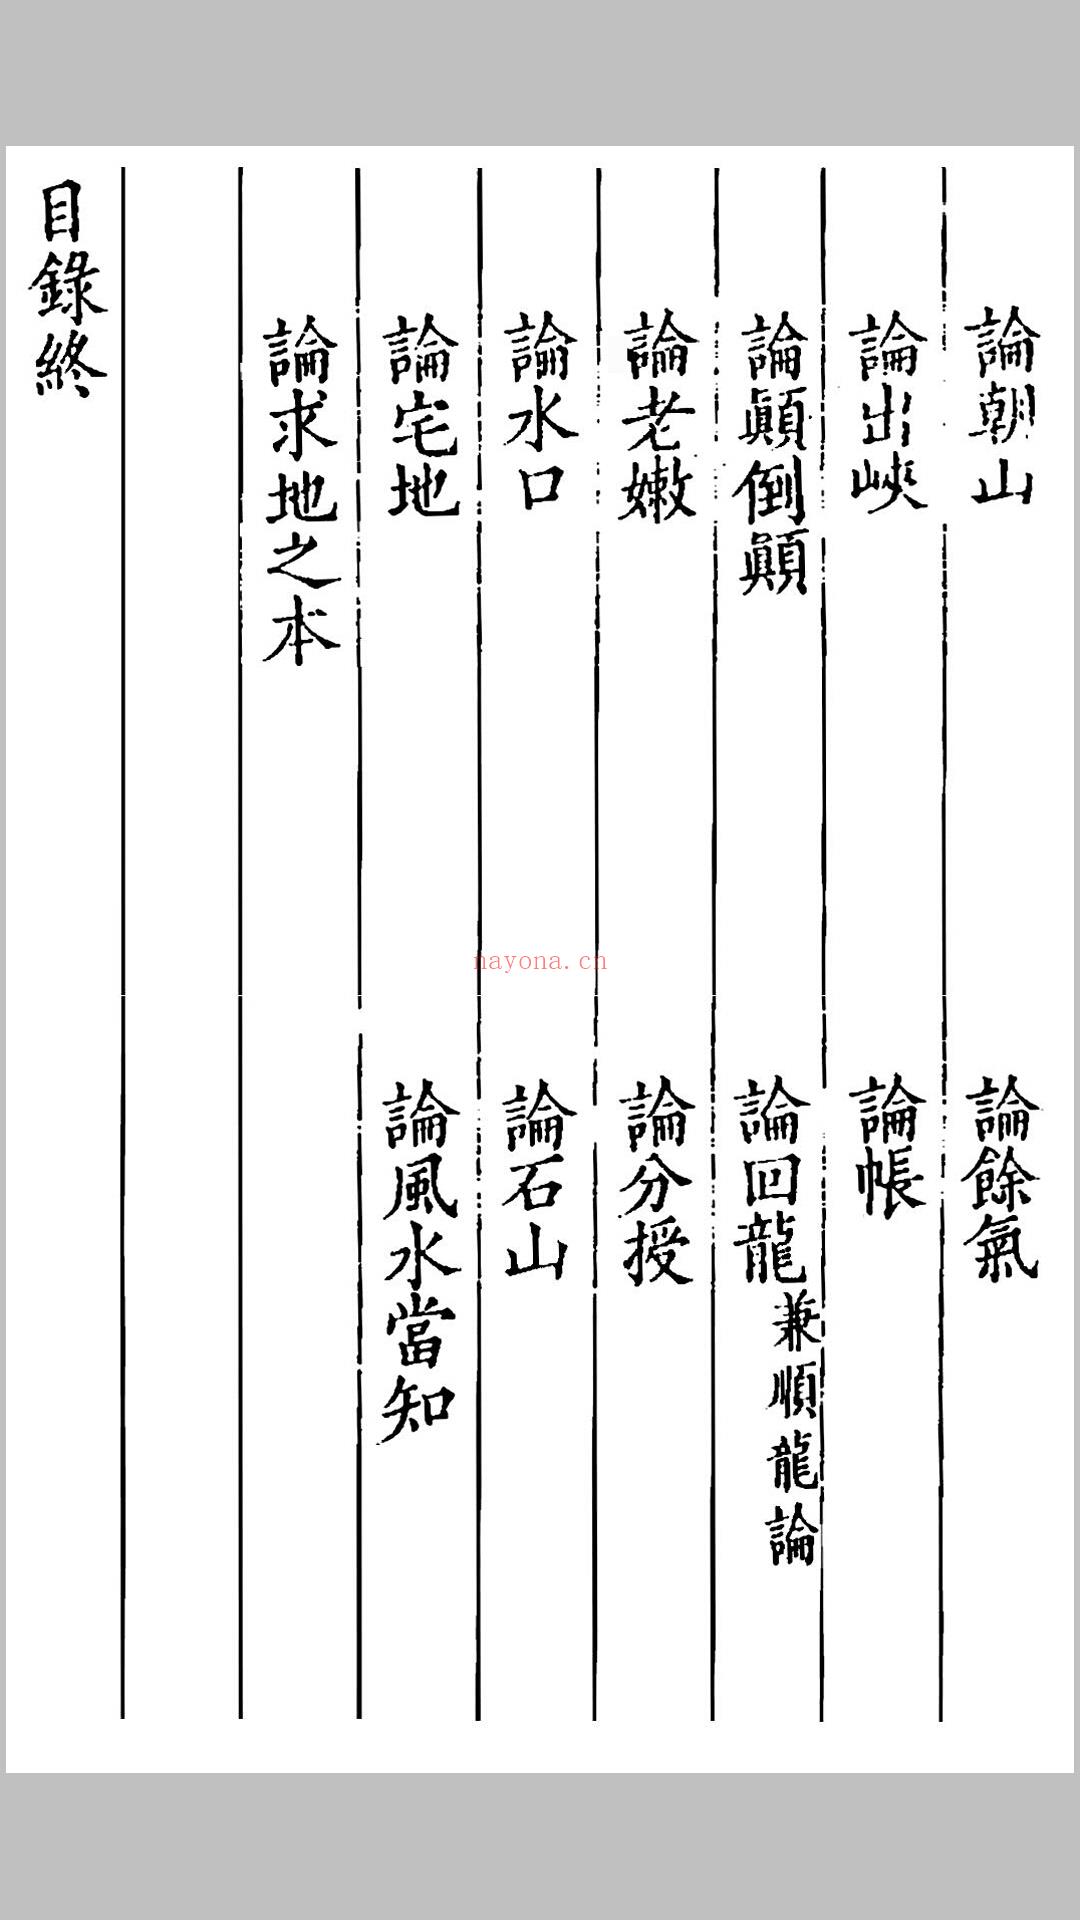 論朝山
論餘氣
論出峽
論帳
論顛倒顛
論回龍兼順龍論
論老嫩
論分授
論水口
論石山
論宅地
論風水當知
論求地之本
目錄終
nayona.cn